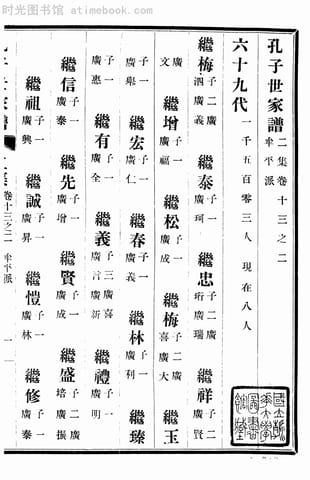 时光图书馆 - atimebook.com
孔子世家譜 二集卷十三之二 牟平派
六十九代 一千五百零三人 現在八人
繼梅 子二廣泗廣義 繼泰 子一廣珂 繼忠 子二廣珩廣瑞 繼祥 子二廣賢
廣文 繼增 子一廣福 繼松 子一廣成 繼梅 子二廣喜廣大 繼玉
子一廣舉 繼宏 子一廣仁 繼春 子一廣義 繼林 子一廣利 繼臻
子一廣惠 繼有 子一廣全 繼義 子三廣喜廣言廣新 繼禮 子一廣明
繼信 子一廣泰 繼先 子一廣增 繼賢 子一廣成 繼盛 子二廣培廣振
繼祖 子一廣興 繼誠 子一廣昇 繼愷 子一廣林 繼修 子一廣泰
子世家譜 卷十三之二 牟平派 一